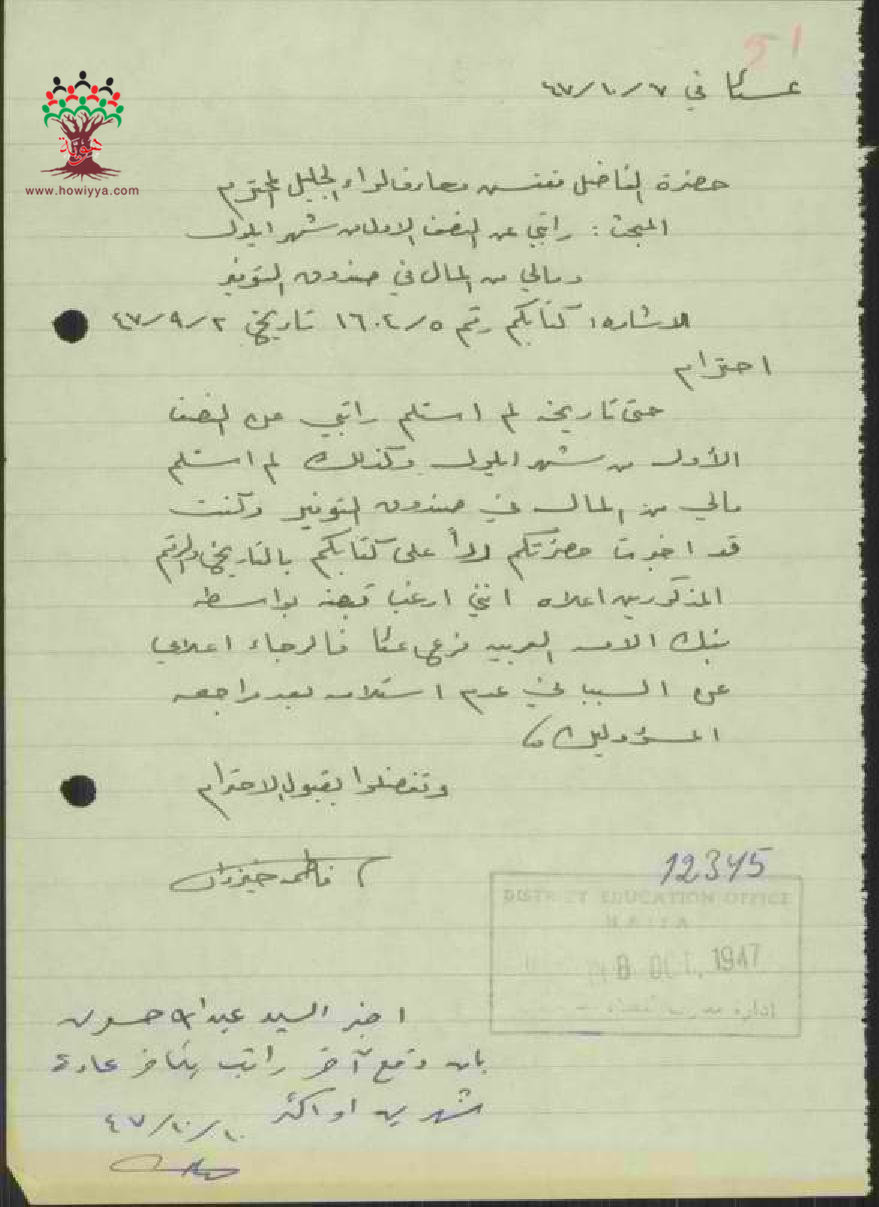 51
عكا في ٧/١٠/٤٧
هوية
www.howiyya.com
حضرة الفاضل مفتش معارف لواء الجليل المحترم
المبحث : راتبي عن النصف الاول من شهر ايلول
ومالي من المال في صندوق التوفير
الاشارة : كتابكم رقم ١٦٠٢/٥ تاريخ ٢/٩/٤٧
احترام
حتى تاريخه لم استلم راتبي عن النصف
الأول من شهر ايلول وكذلك لم استلم
مالي من المال في صندوق التوفير وكنت
قد اخبرت حضرتكم رداً على كتابكم بالتاريخ والرقم
المذكورين اعلاه انني ارغب قبضه بواسطة
بنك الامة العربية فرع عكا فالرجاء اعلامي
عن السبب في عدم استلامه بعد مراجعة
المسؤولين
وتفضلوا بقبول الاحترام
فاطمة خيزران
12345
DISTRICT EDUCATION OFFICE
HAIFA
8 OCT. 1947
ادارة
اخبر السيد عبدالله حسون
بان دفع آخر راتب يتأخر عادة
شهرين او اكثر
١٠/١٠/٤٧